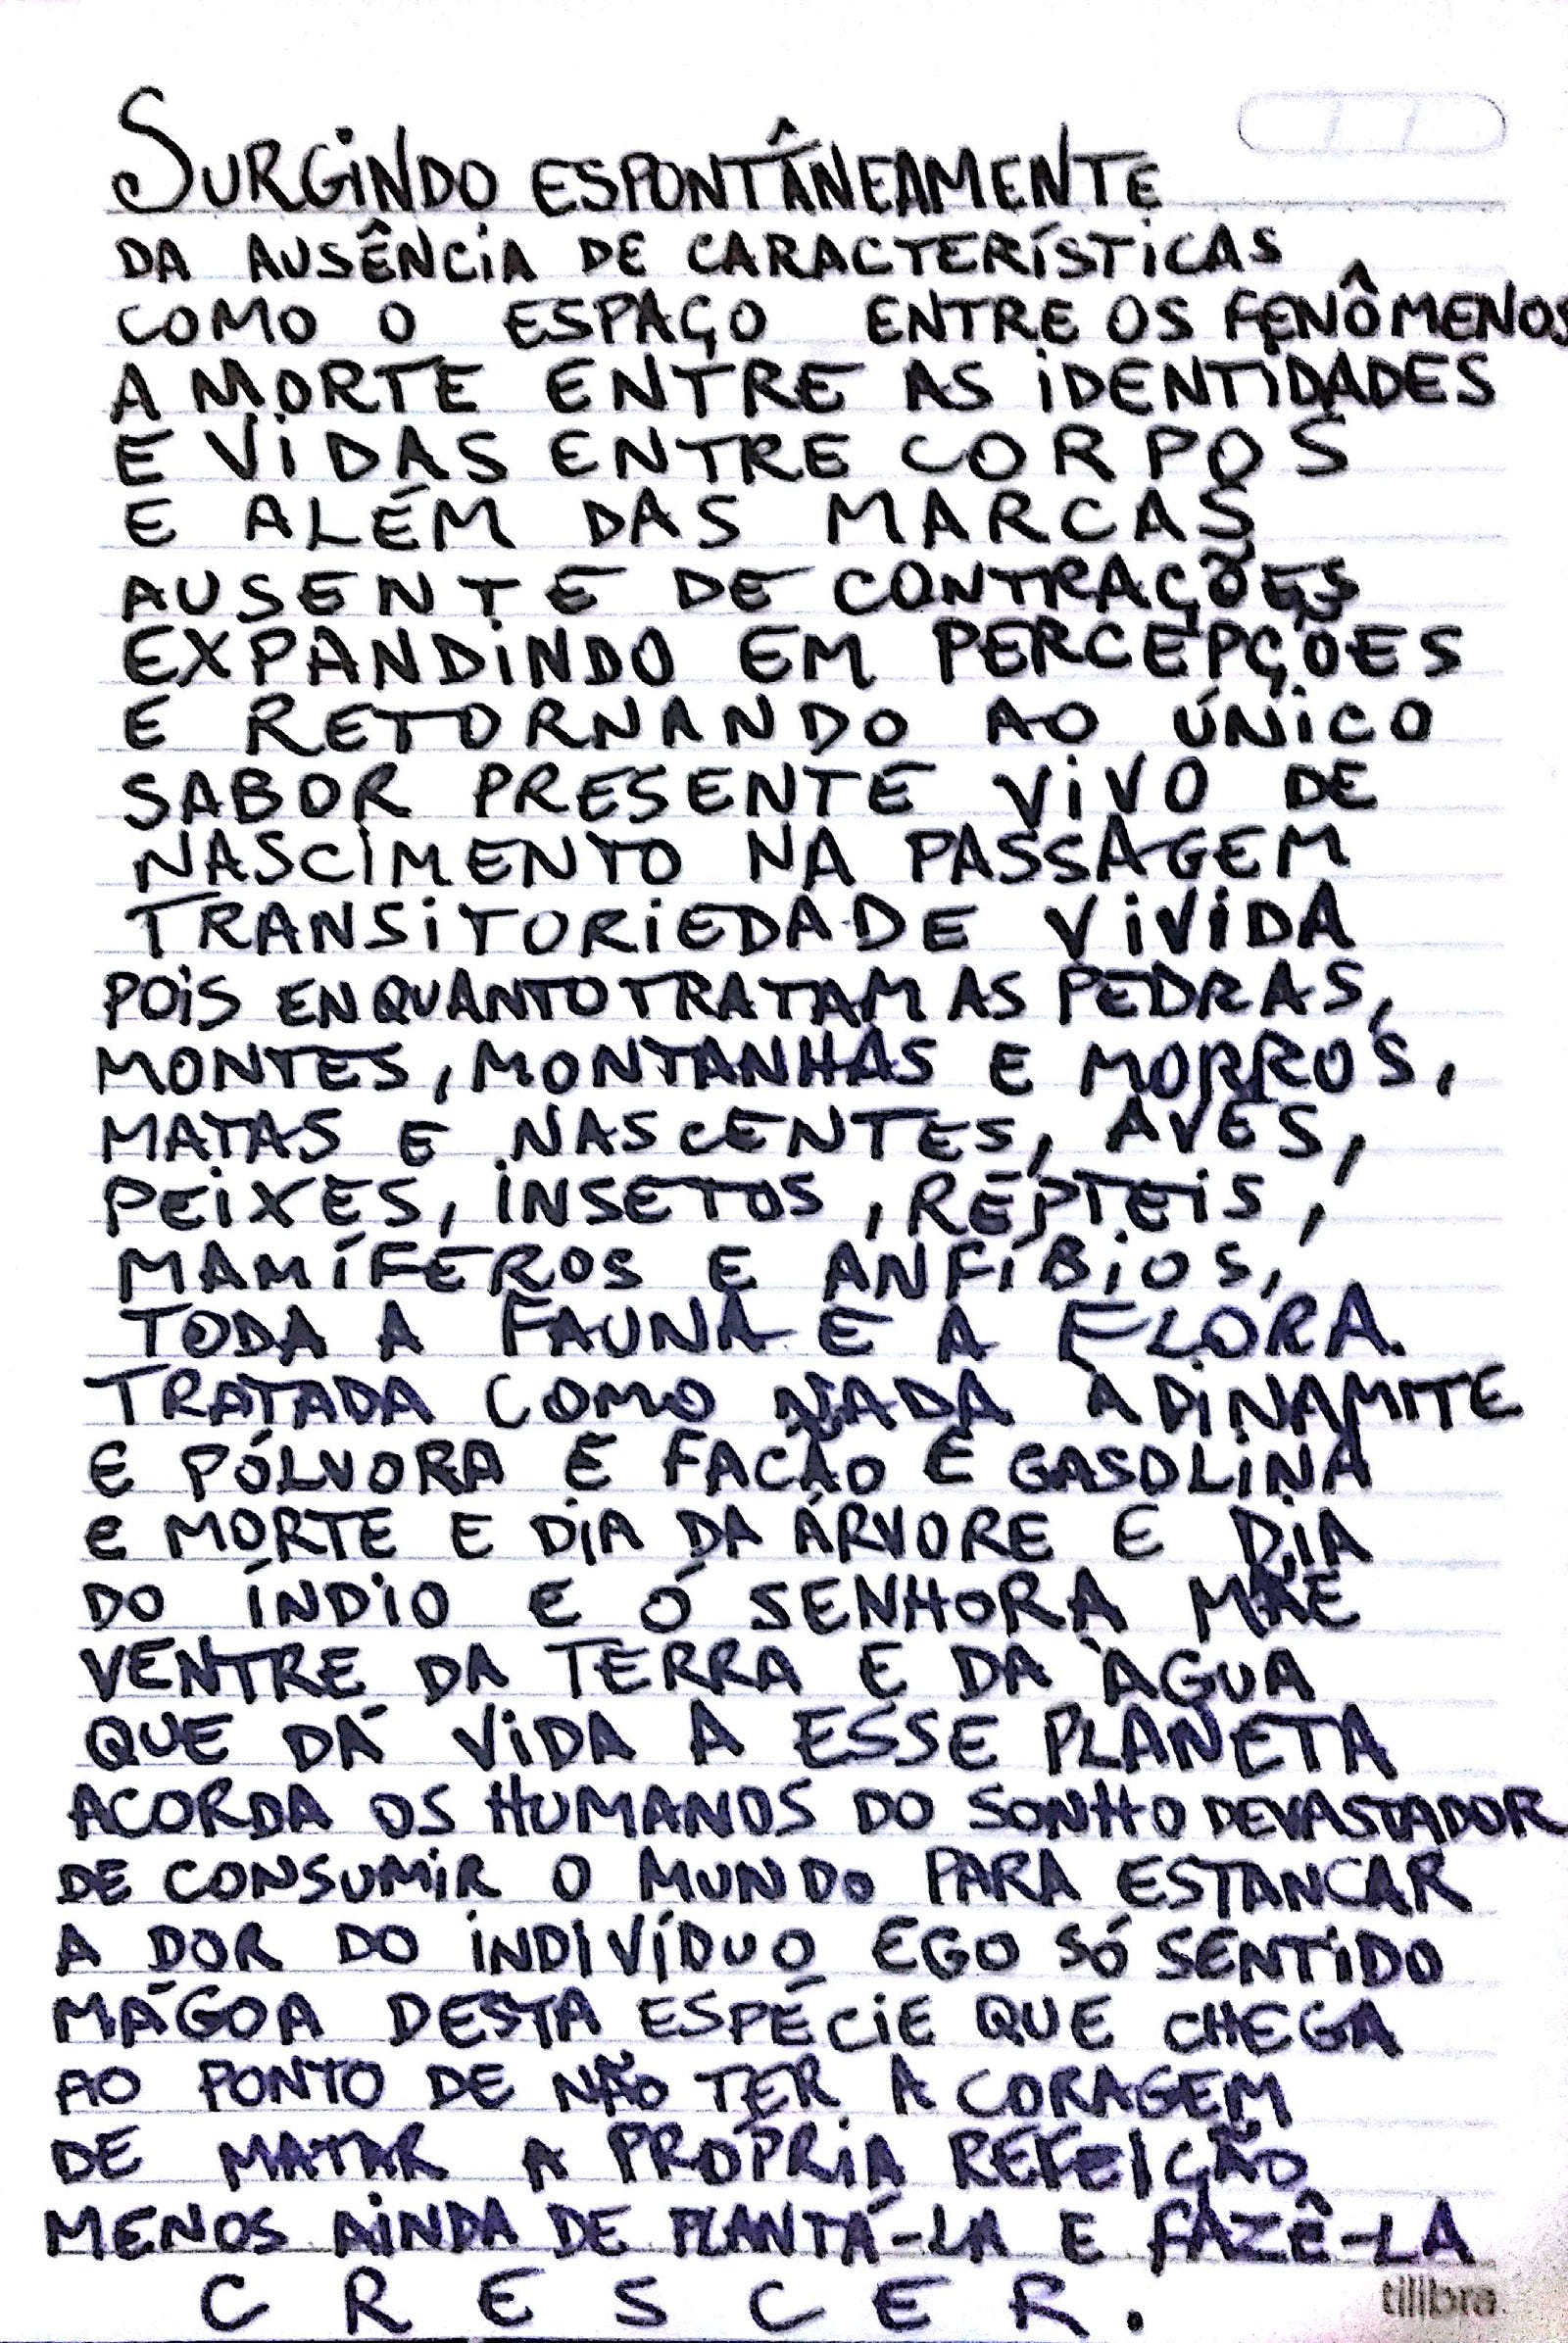 SURGINDO ESPONTÂNEAMENTE
DA AUSÊNCIA DE CARACTERÍSTICAS
COMO O ESPAÇO ENTRE OS FENÔMENOS
A MORTE ENTRE AS IDENTIDADES
E VIDAS ENTRE CORPOS
E ALÉM DAS MARCAS
AUSENTE DE CONTRAÇÕES
EXPANDINDO EM PERCEPÇÕES
E RETORNANDO AO ÚNICO
SABOR PRESENTE VIVO DE
NASCIMENTO NA PASSAGEM
TRANSITORIEDADE VIVIDA
POIS ENQUANTO TRATAM AS PEDRAS,
MONTES, MONTANHAS E MORROS,
MATAS E NASCENTES, AVES,
PEIXES, INSETOS, RÉPTEIS,
MAMÍFEROS E ANFÍBIOS,
TODA A FAUNA E A FLORA.
TRATADA COMO NADA A DINAMITE
E PÓLVORA E FACÃO E GASOLINA
E MORTE E DIA DA ÁRVORE E DIA
DO ÍNDIO E Ó SENHORA MÃE
VENTRE DA TERRA E DA ÁGUA
QUE DÁ VIDA A ESSE PLANETA
ACORDA OS HUMANOS DO SONHO DEVASTADOR
DE CONSUMIR O MUNDO PARA ESTANCAR
A DOR DO INDIVÍDUO EGO SÓ SENTIDO
MÁGOA DESTA ESPÉCIE QUE CHEGA
AO PONTO DE NÃO TER A CORAGEM
DE MATAR A PRÓPRIA REFEIÇÃO
MENOS AINDA DE PLANTÁ-LA E FAZÊ-LA
C R E S C E R.
tilibra